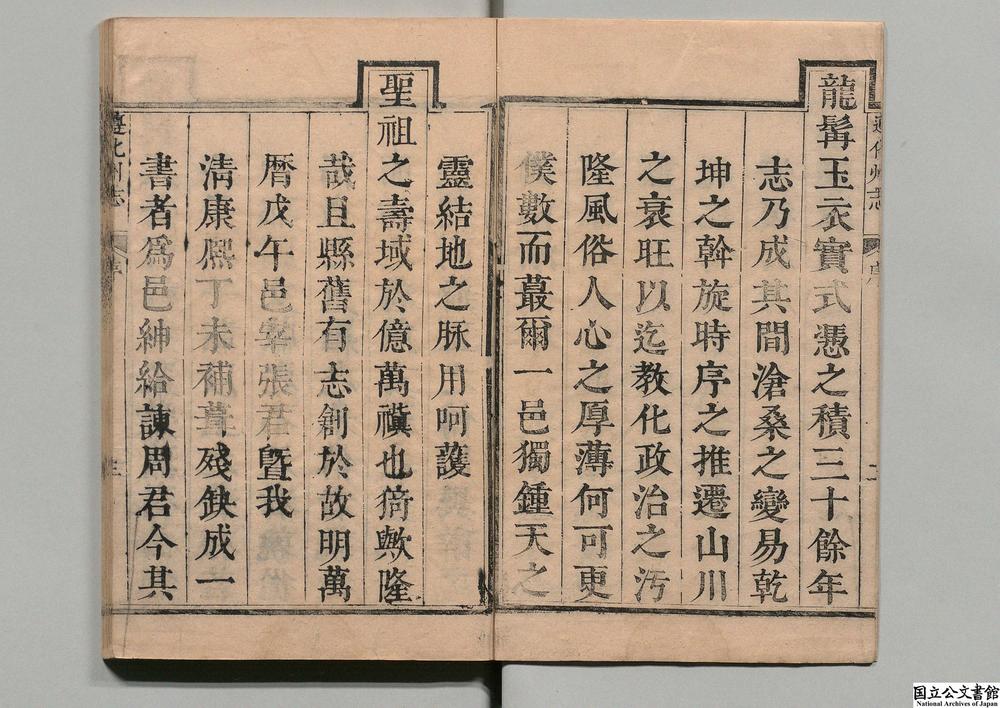 龍髯玉衣實式憑之積三十餘年
志乃成其間滄桑之變易乾
坤之斡旋時序之推遷山川
之衰旺以迄教化政治之汚
隆風俗人心之厚薄何可更
僕數而蕞爾一邑獨鍾天之
靈結地之脉用呵護
聖祖之壽域於億萬禩也猗歟隆
哉且縣舊有志創於故明萬
曆戊午邑宰張君曁我
淸康熙丁未補葺殘缺成一
書者爲邑紳給諫周君今其
遵化州志
国立公文書館
National Archives of Japan